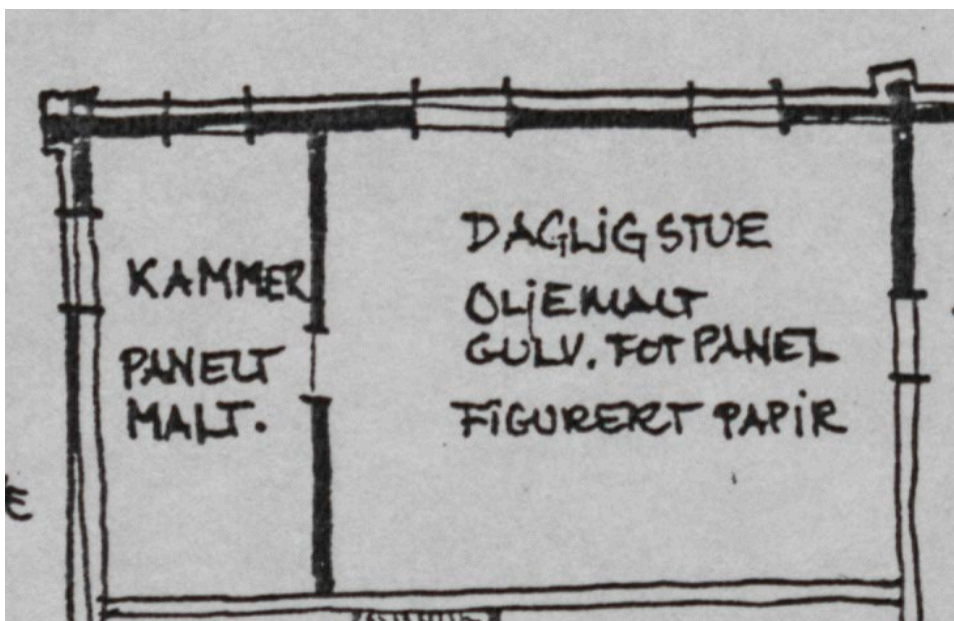 KAMMER
PANELT
MALT.
DAGLIGSTUE
OLJEMALT
GULV. FOTPANEL
FIGURERT PAPIR